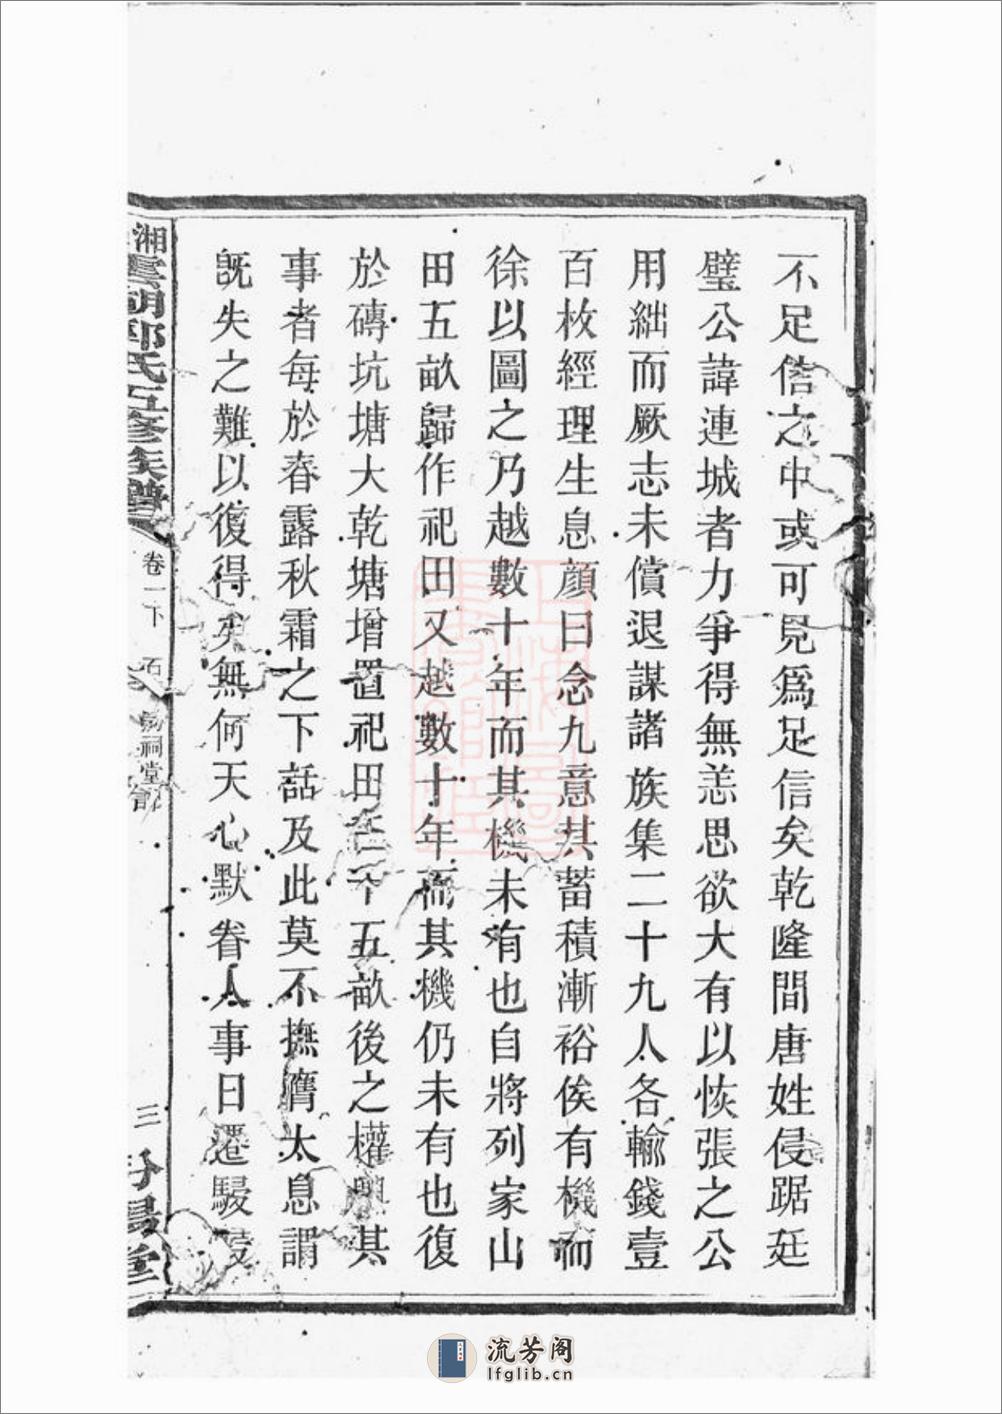 不足信之中或可見爲足信矣乾隆間唐姓侵踞廷
璧公諱連城者力爭得無恙思欲大有以恢張之公
用絀而厥志未償退謀諸族集二十九人各輸錢壹
百枚經理生息顏曰念九意其蓄積漸裕俟有機而
徐以圖之乃越數十年而其機未有也自將列家山
田五畝歸作祀田又越數十年而其機仍未有也復
於磚坑塘大乾塘增置祀田二十五畝後之權輿其
事者每於春露秋霜之下話及此莫不撫膺太息謂
旣失之難以復得矣無何天心默眷人事日遷駸
湘雲湖郭氏五修族譜
卷一下
石 祠堂記
三
汾陽堂
流芳阁
lfglib.cn